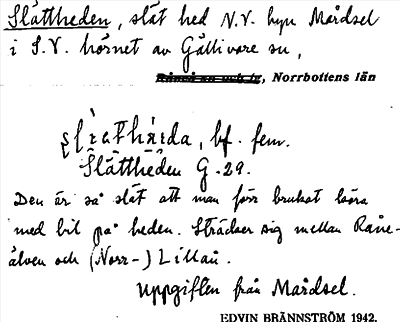 Slättheden, slät hed N.V. byn Mårdsel
i S.V. hörnet av Gällivare sn,
, Norrbottens län
bf. fem.
Slättheden G. 29.
Den är så slät att man förr brukat köra
med bil på heden. Sträcker sig mellan Råne-
älven och (Norr-) Lillån.
Uppgiften från Mårdsel.
EDVIN BRÄNNSTRÖM 1942.